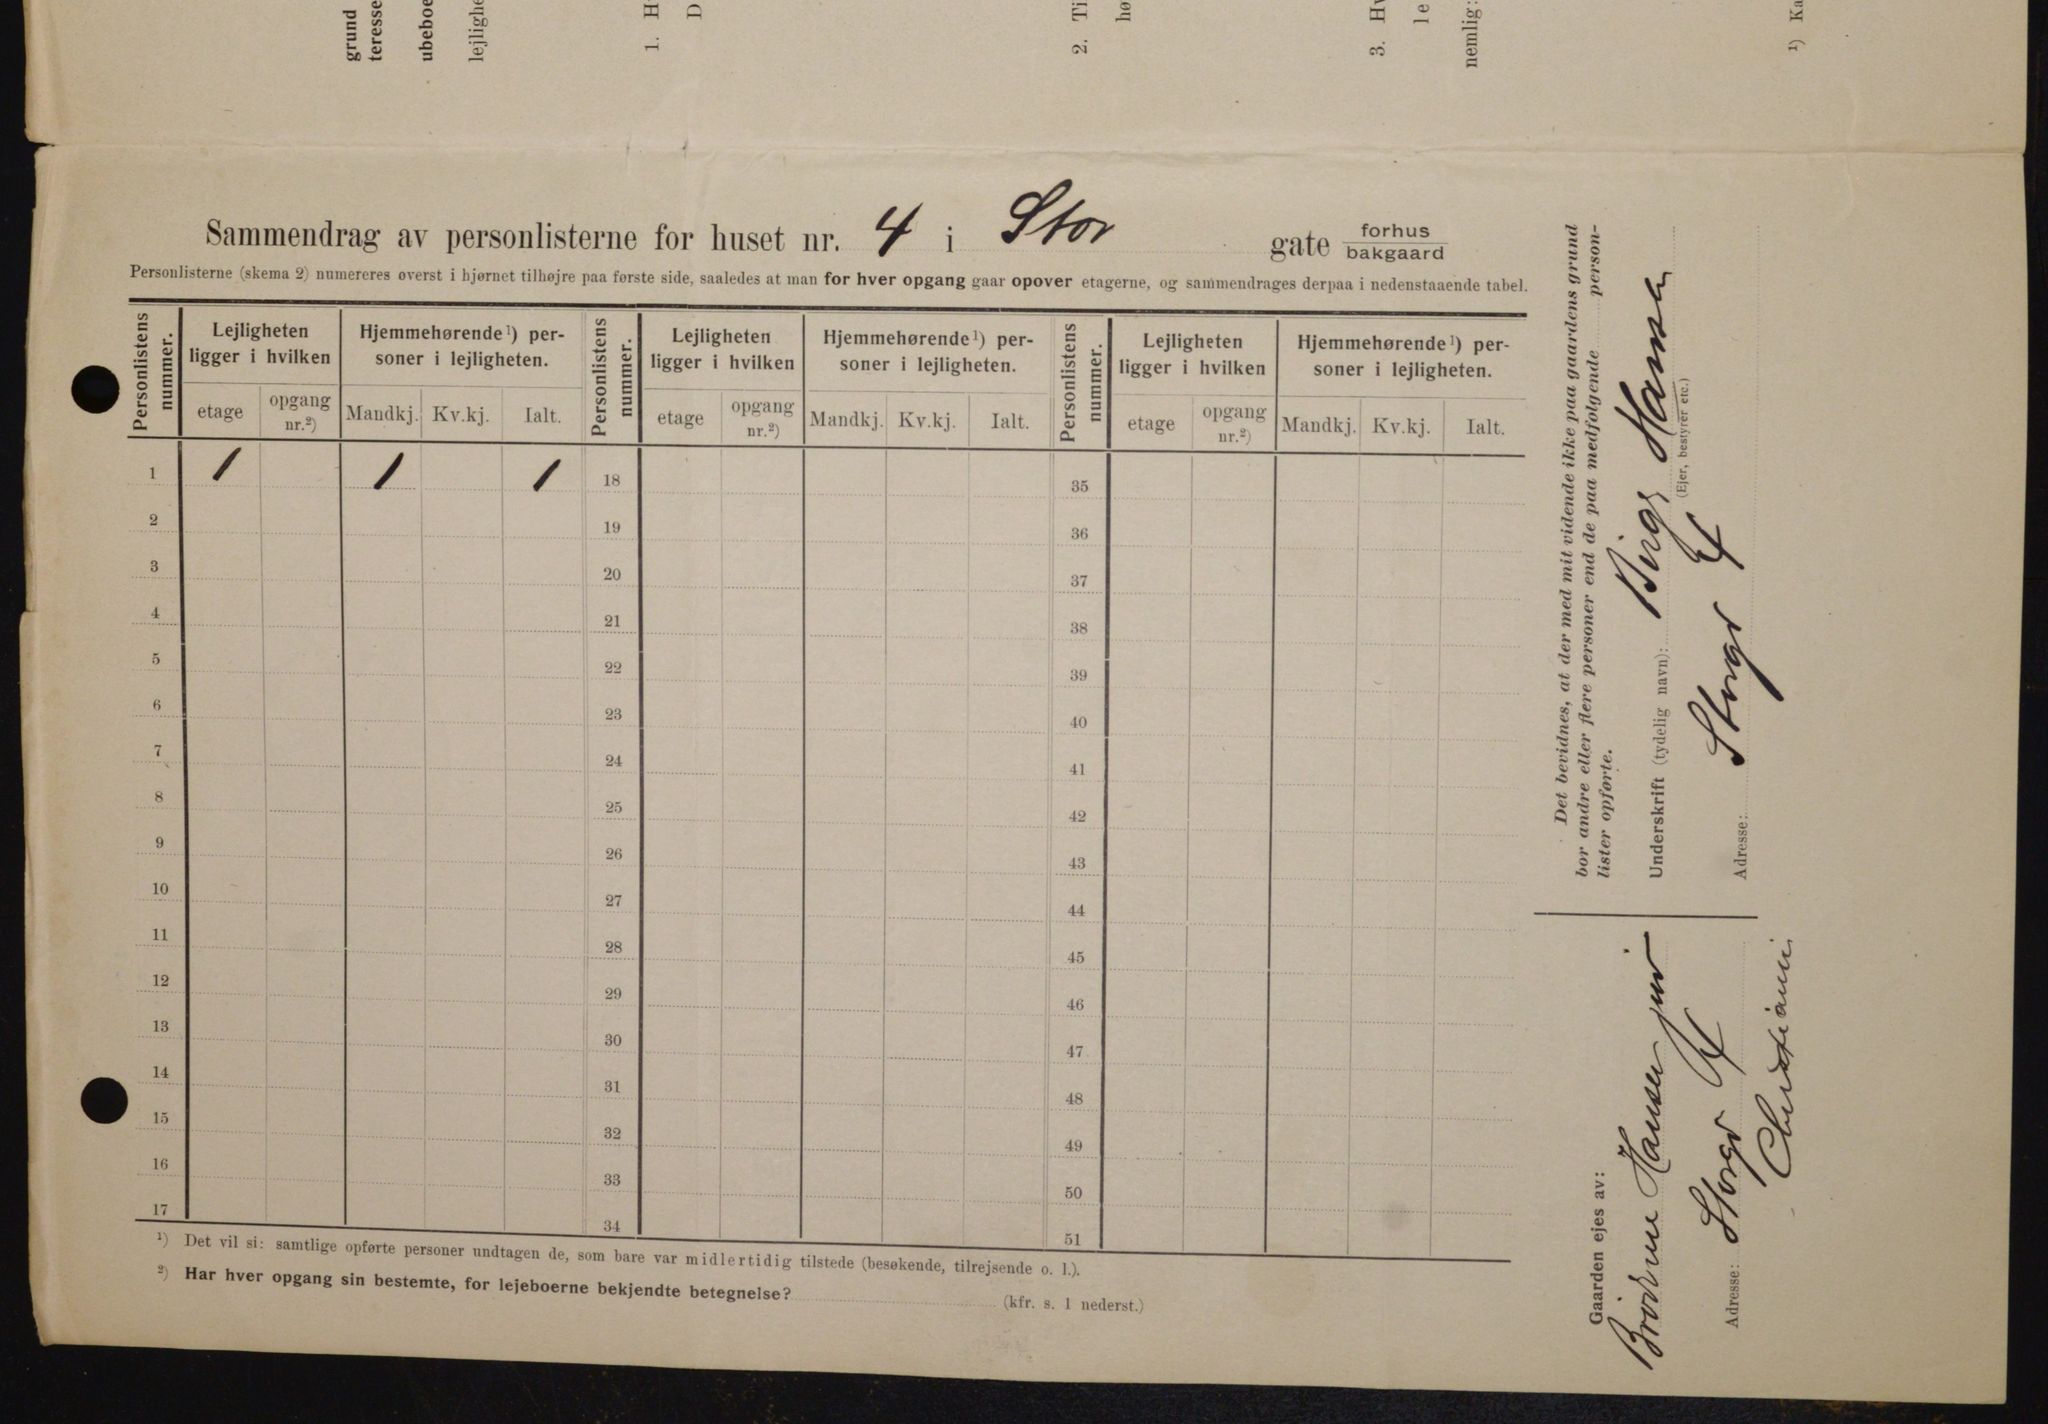 grund
teresse
ubeboe
lejlighe
1. H
D
2. Ti
hø
3. Hv
le
nemlig:
¹) Ka
Sammendrag av personlisterne for huset nr. 4 i Stor gate forhus
bakgaard
Personlisterne (skema 2) numereres øverst i hjørnet tilhøjre paa første side, saaledes at man for hver opgang gaar opover etagerne, og sammendrages derpaa i nedenstaaende tabel.
Personlistens nummer. Lejligheten ligger i hvilken Hjemmehørende¹) personer i lejligheten. Personlistens nummer. Lejligheten ligger i hvilken Hjemmehørende¹) personer i lejligheten. Personlistens nummer. Lejligheten ligger i hvilken Hjemmehørende¹) personer i lejligheten.
etage opgang nr.²) Mandkj. Kv.kj. Ialt. etage opgang nr.²) Mandkj. Kv.kj. Ialt. etage opgang nr.²) Mandkj. Kv.kj. Ialt.
1 1 1 1 18 35
2 19 36
3 20 37
4 21 38
5 22 39
6 23 40
7 24 41
8 25 42
9 26 43
10 27 44
11 28 45
12 29 46
13 30 47
14 31 48
15 32 49
16 33 50
17 34 51
¹) Det vil si: samtlige opførte personer undtagen de, som bare var midlertidig tilstede (besøkende, tilrejsende o. l.).
²) Har hver opgang sin bestemte, for lejeboerne bekjendte betegnelse? (kfr. s. 1 nederst.)
Det bevidnes, at der med mit vidende ikke paa gaardens grund
bor andre eller flere personer end de paa medfølgende person-
lister opførte.
Underskrift (tydelig navn): Birg Hansen
(Ejer, bestyrer etc.)
Adresse: Storgt 4
Gaarden ejes av:
Brødrene Hansen junr
Adresse: Storgt 4
Christiania